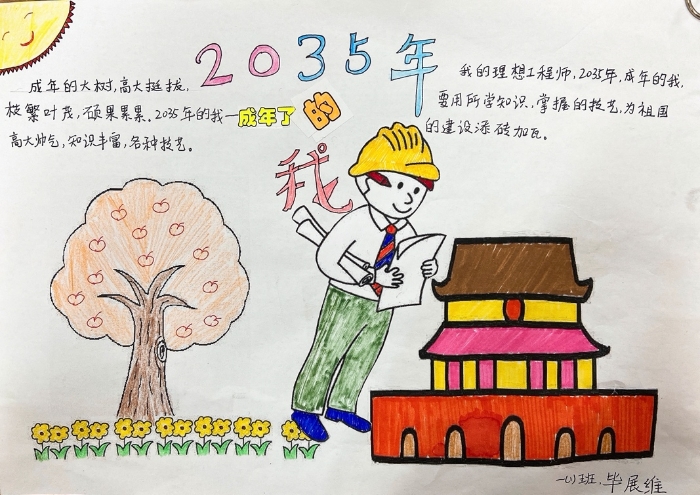 2035年
的
我
成年的大树,高大挺拔,
枝繁叶茂,硕果累累。2035年的我一成年了
高大帅气,知识丰富,各种技艺。
我的理想工程师,2035年,成年的我,
要用所学知识,掌握的技艺,为祖国
的建设添砖加瓦。
一(1)班,毕展维